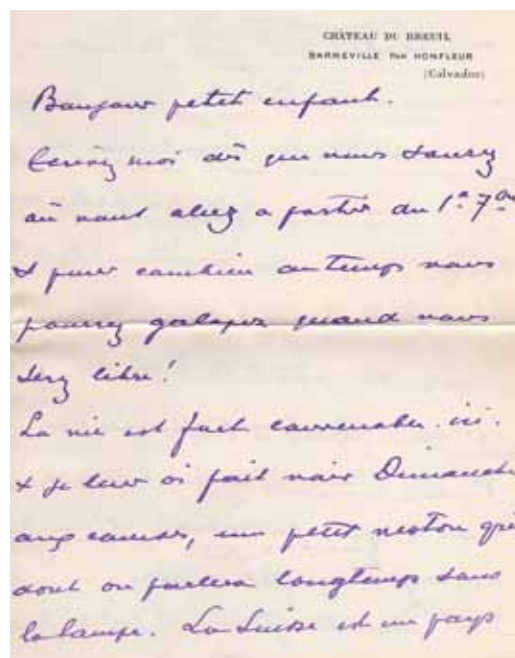 CHÂTEAU DU BREUIL
BARNEVILLE PAR HONFLEUR
(Calvados)
Bonjour petit enfant.
Ecrivez moi dès que vous saurez
où vous allez a partir du 1er 7bre
& pour combien de temps vous
pourrez galoper quand vous
serez libre!
La vie est fort convenable ici.
& je leur ai fait voir Dimanche
aux courses, un petit veston gris
dont on parlera longtemps sous
la lampe. La Suisse est un pays